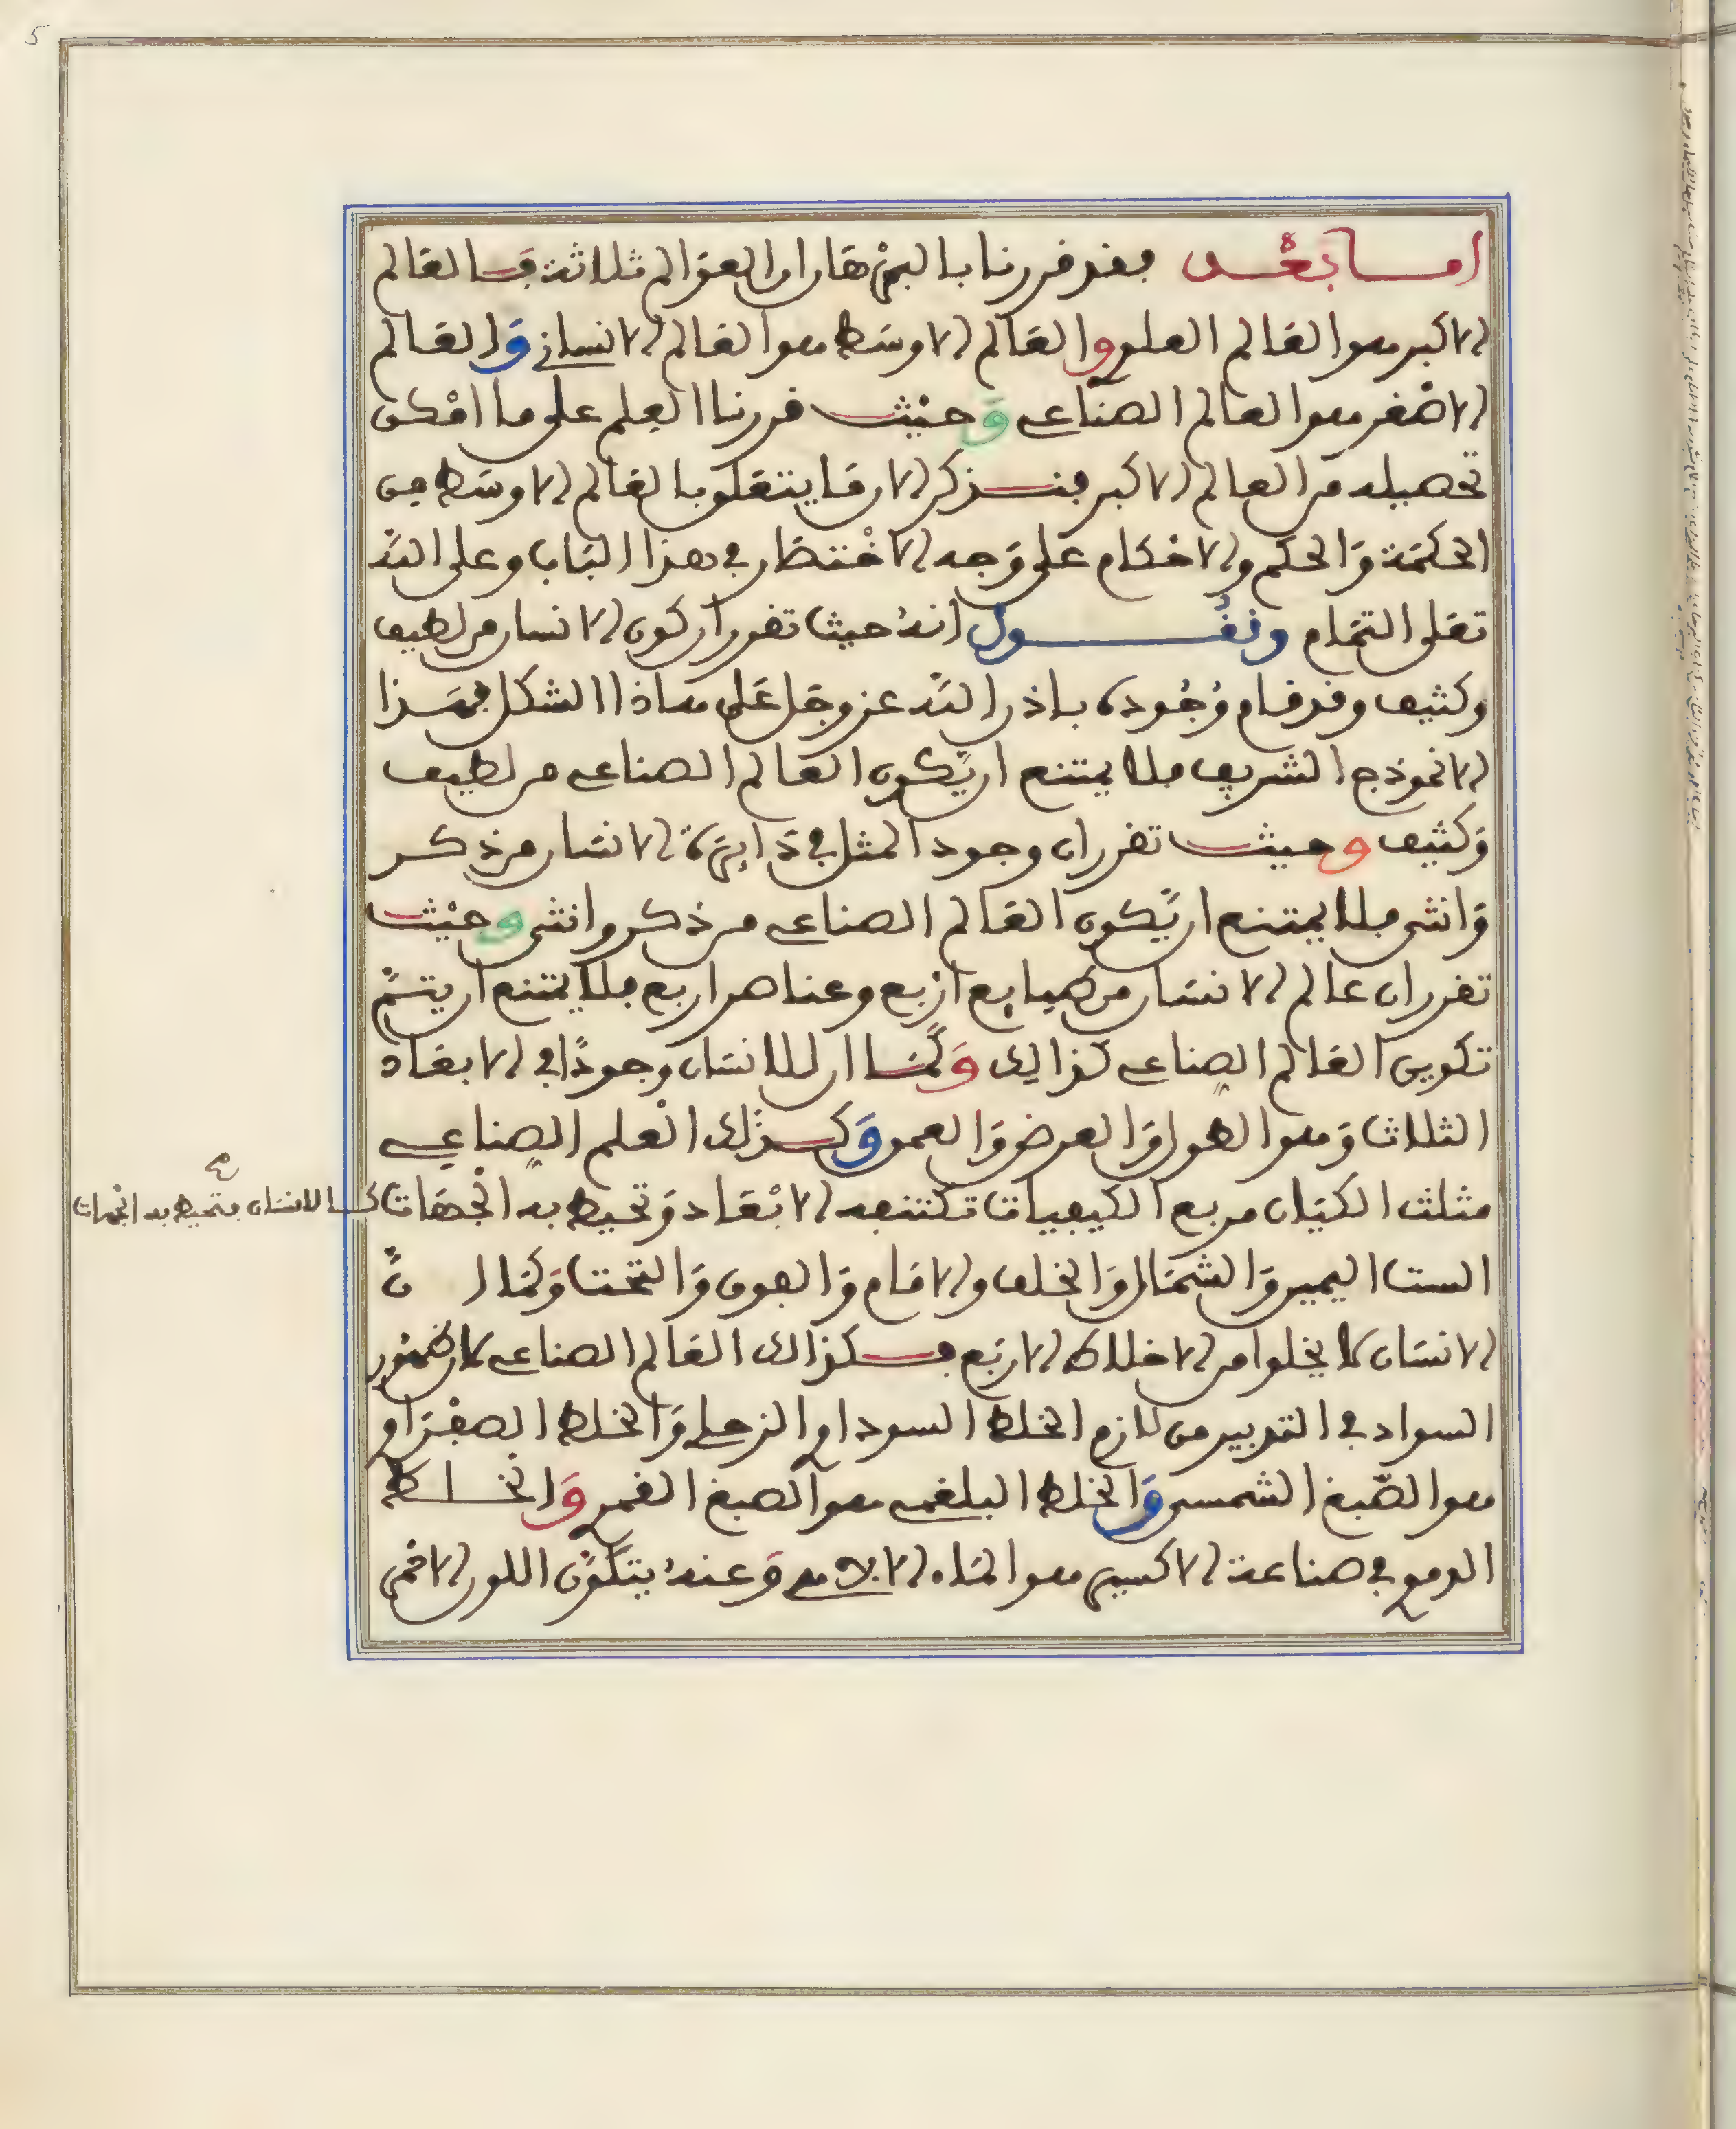 5
اما بعد فقد قررنا بالبرهان ان العوالم ثلاثة فالعالم
الاكبر هو العالم العلوي والعالم الاوسط هو العالم الانساني والعالم
الاصغر هو العالم الصناعي وحيث قررنا العلم على ما امكن
تحصيله من العالم الاكبر فنذكر الان ما يتعلق بالعالم الاوسط من
الحكمة والحكم والاحكام على وجه الاختصار في هذا الباب وعلى الله
تعلى التمام ونقول انه حيث تقرر ان كون الانسان من لطيف
وكثيف وقد قام وجوده باذن الله عز وجل على هاذا الشكل فهذا
الانموذج الشريف فلا يمتنع ان يكون العالم الصناعي من لطيف
وكثيف وحيث تقرر ان وجود المثل في دايرة الانسان من ذكر
وانثى فلا يمتنع ان يكون العالم الصناعي من ذكر وانثى وحيث
تقرر ان عالم الانسان من طبايع اربع وعناصر اربع فلا يمتنع ان يتم
تكوين العالم الصناعي كذالك وكما ان للانسان وجودا في الابعاد
الثلاث وهو الطول والعرض والعمق وكذلك العلم الصناعي
مثلث الكيان مربع الكيفيات تكتنفه الابعاد وتحيط به الجهات
كما للانسان فتحيط به الجهات
الست اليمين والشمال والخلف والامام والفوق والتحت وكما ان
الانسان لا يخلوا من الاخلاط الاربع فكذالك العالم الصناعي لان ظهور
السواد في التدبير من لازم الخلط السوداوي الزحلي والخلط الصفراوي
هو الصبغ الشمسي والخلط البلغمي هو الصبغ القمري والخلط
الدموي في صناعة الاكسير هو الماء الالاهي وعنه يتكون اللون الاحمر